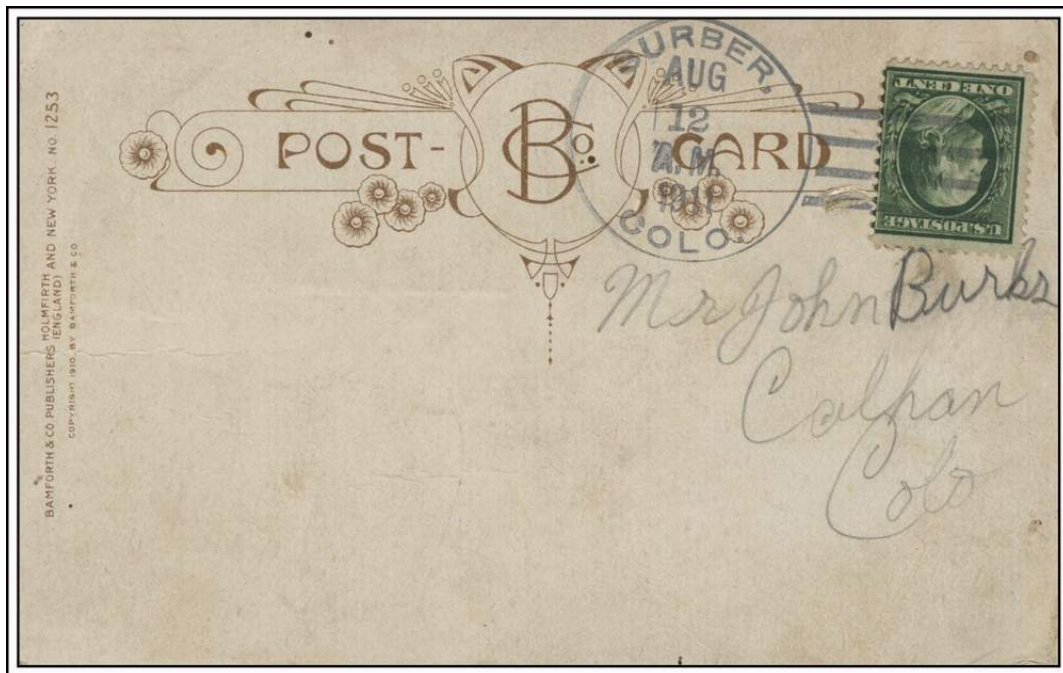 BAMFORTH & CO. PUBLISHERS HOLMFIRTH AND NEW YORK. NO. 1253
(ENGLAND)
COPYRIGHT 1910 BY BAMFORTH & CO
POST- B Co. CARD
SURBER.
AUG
12
A.M.
COLO.
U.S. POSTAGE
ONE CENT
Mr John Burks
Calhan
Colo